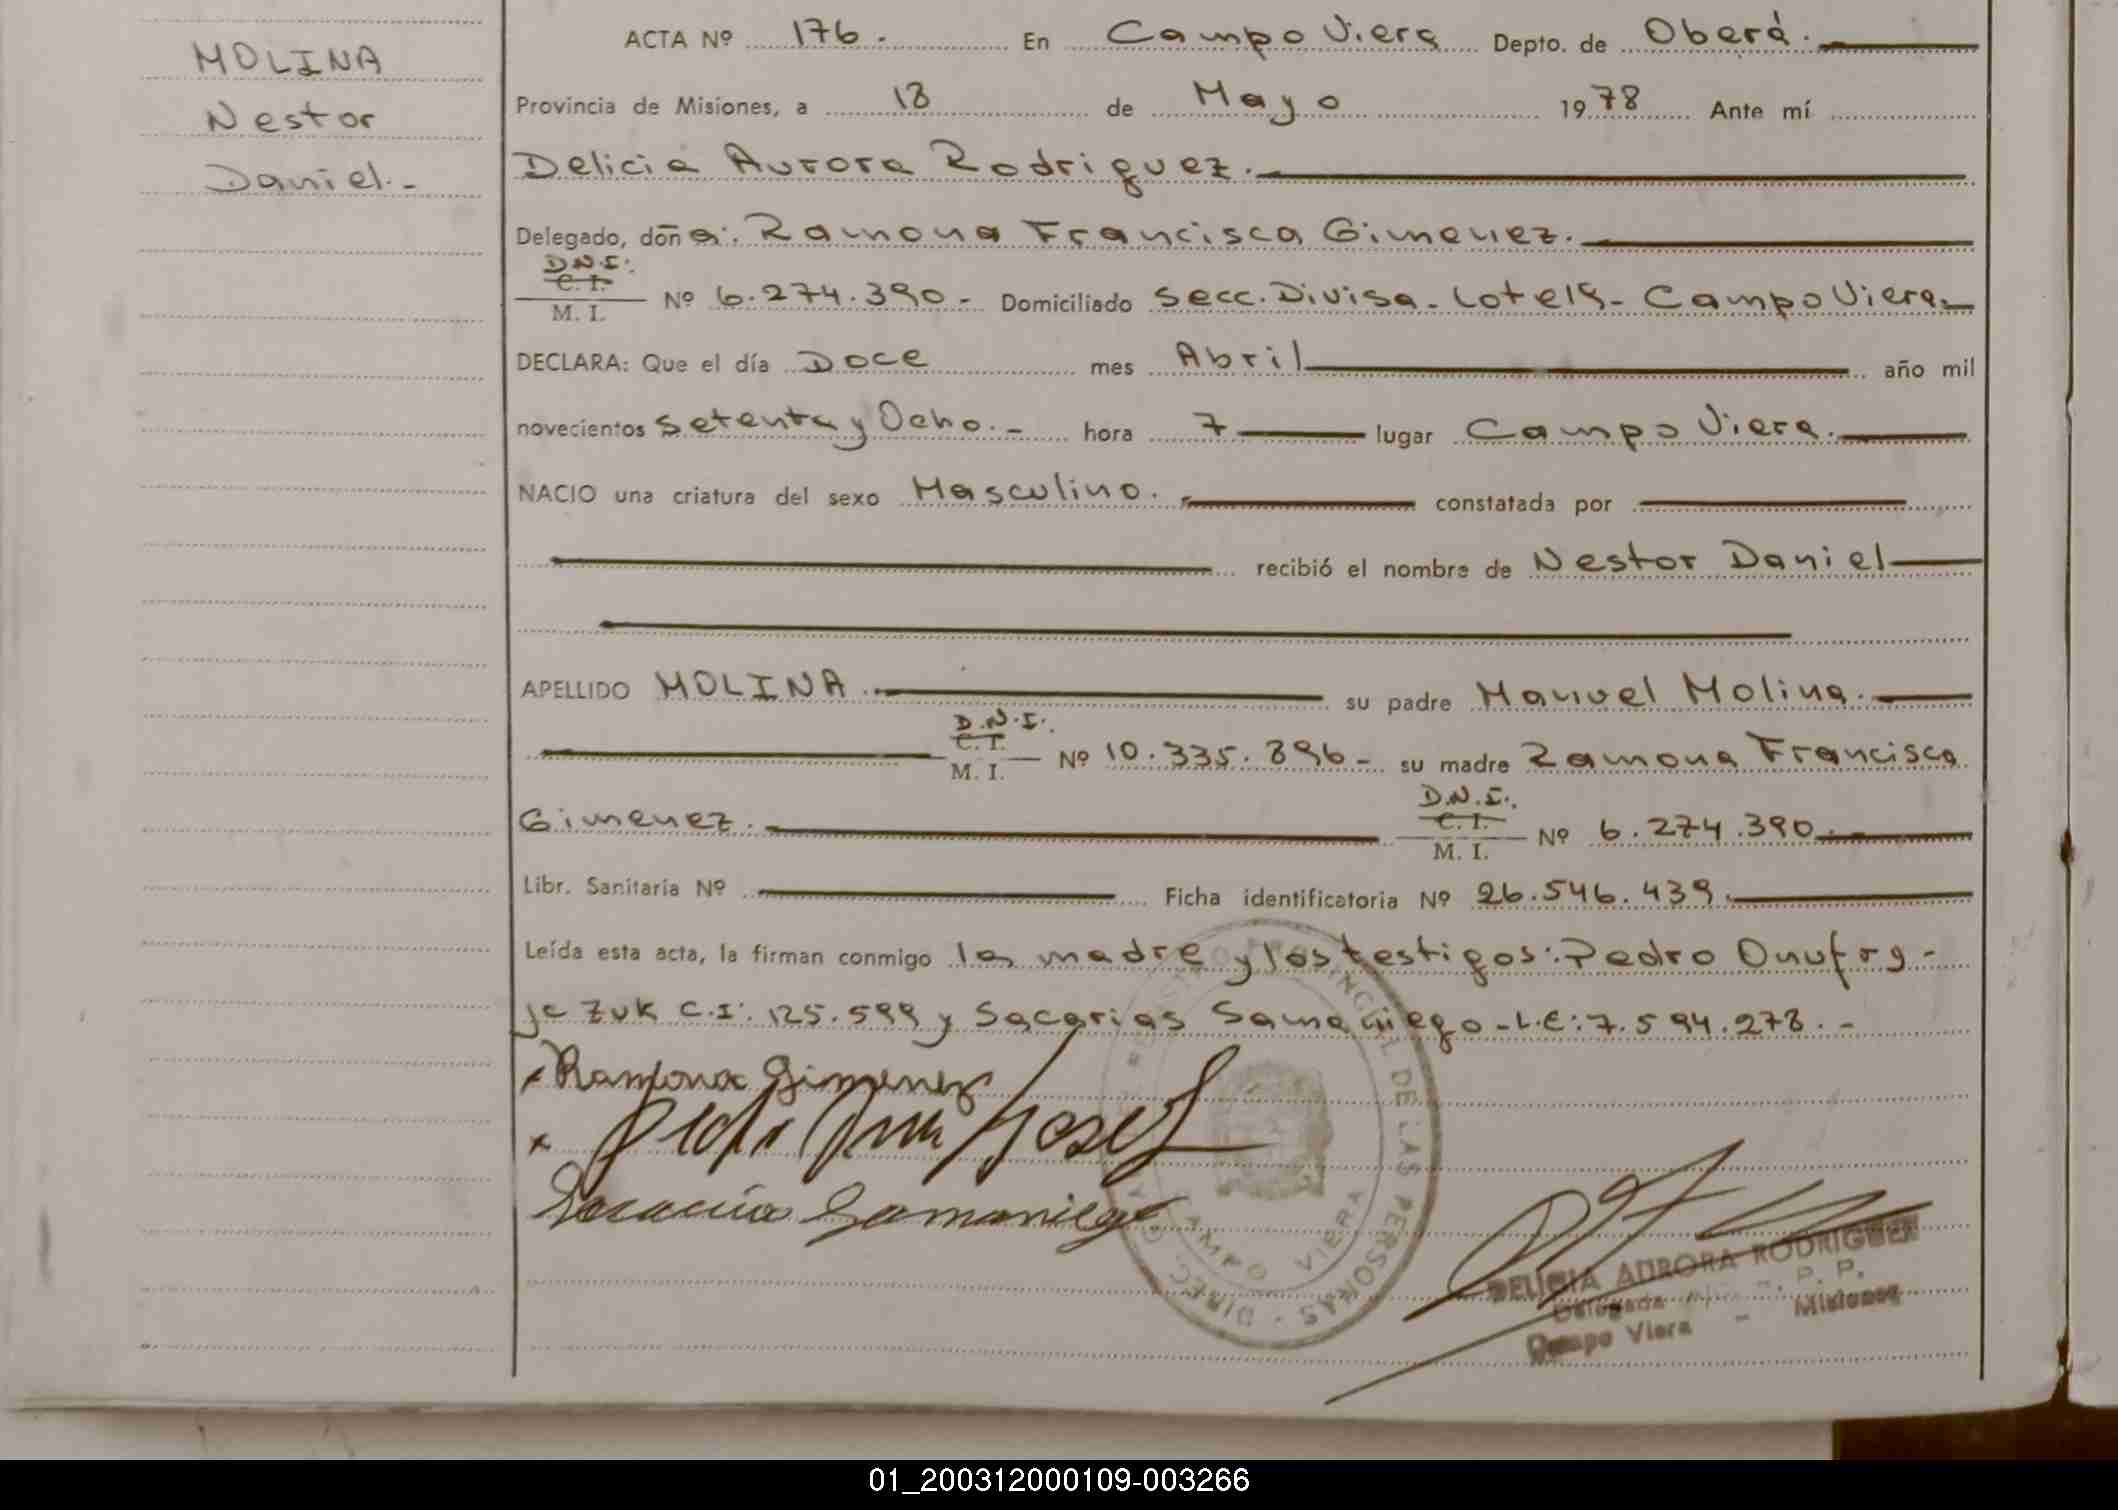 MOLINA
Nestor
Daniel.-
ACTA Nº 176. En Campo Viera Depto. de Oberá.
Provincia de Misiones, a 18 de Mayo 1978 Ante mí
Delicia Aurora Rodriguez.
Delegado, doña: Ramona Francisca Gimenez.
D.N.I.
C. I.
M. I.
Nº 6.274.390.- Domiciliado Secc. Divisa - Campo Viera.
DECLARA: Que el día Doce mes Abril año mil
novecientos Setenta y Ocho.- hora 7 lugar Campo Viera.
NACIO una criatura del sexo Masculino. constatada por
recibió el nombre de Nestor Daniel
APELLIDO MOLINA. su padre Manuel Molina.
D.N.I.
C. I.
M. I.
Nº 10.335.896- su madre Ramona Francisca
Gimenez.
D.N.I.
C. I.
M. I.
Nº 6.274.390.
Libr. Sanitaria Nº Ficha identificatoria Nº 26.546.439.
Leída esta acta, la firman conmigo la madre y los testigos: Pedro Onufrg-
jc Zuk C.I: 125.599 y Sacarias Samaniego - L.E: 7.594.278.-
Ramona Gimenez
Samaniego
PROVINCIAL DE LAS PERSONAS - DIREC
CAMPO VIERA
DELICIA AURORA RODRIGUEZ
Delegada P. P.
Campo Viera - Misiones
01_200312000109-003266